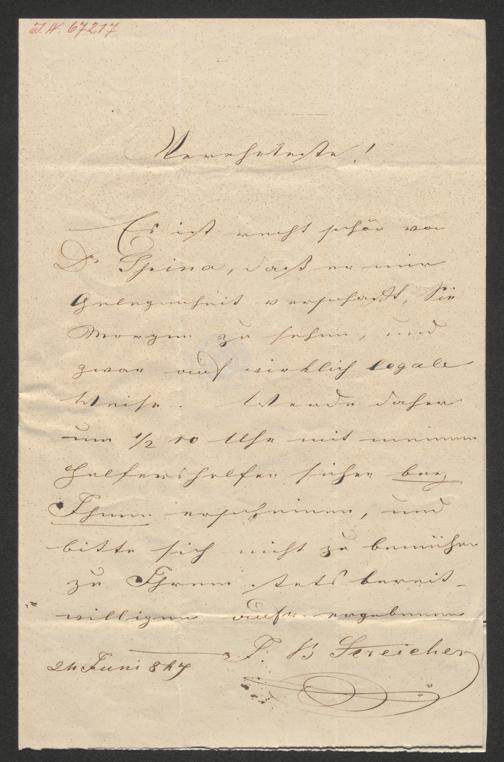 I.N. 67217
Verehrteste!
Es ist recht schön von
Dr Spina, daß er mir
Gelegenheit verschafft, Sie
Morgen zu sehen, und
zwar auf wirklich legale
Weise. Werde daher
um 1/2 10 Uhr mit meinem
Helfershelfer sicher bey
Ihnen erscheinen, und
bitte sich nicht zu bemühen
zu Ihrem stets bereit-
willigen ergebenen
J. B Streicher
24 Juni 847